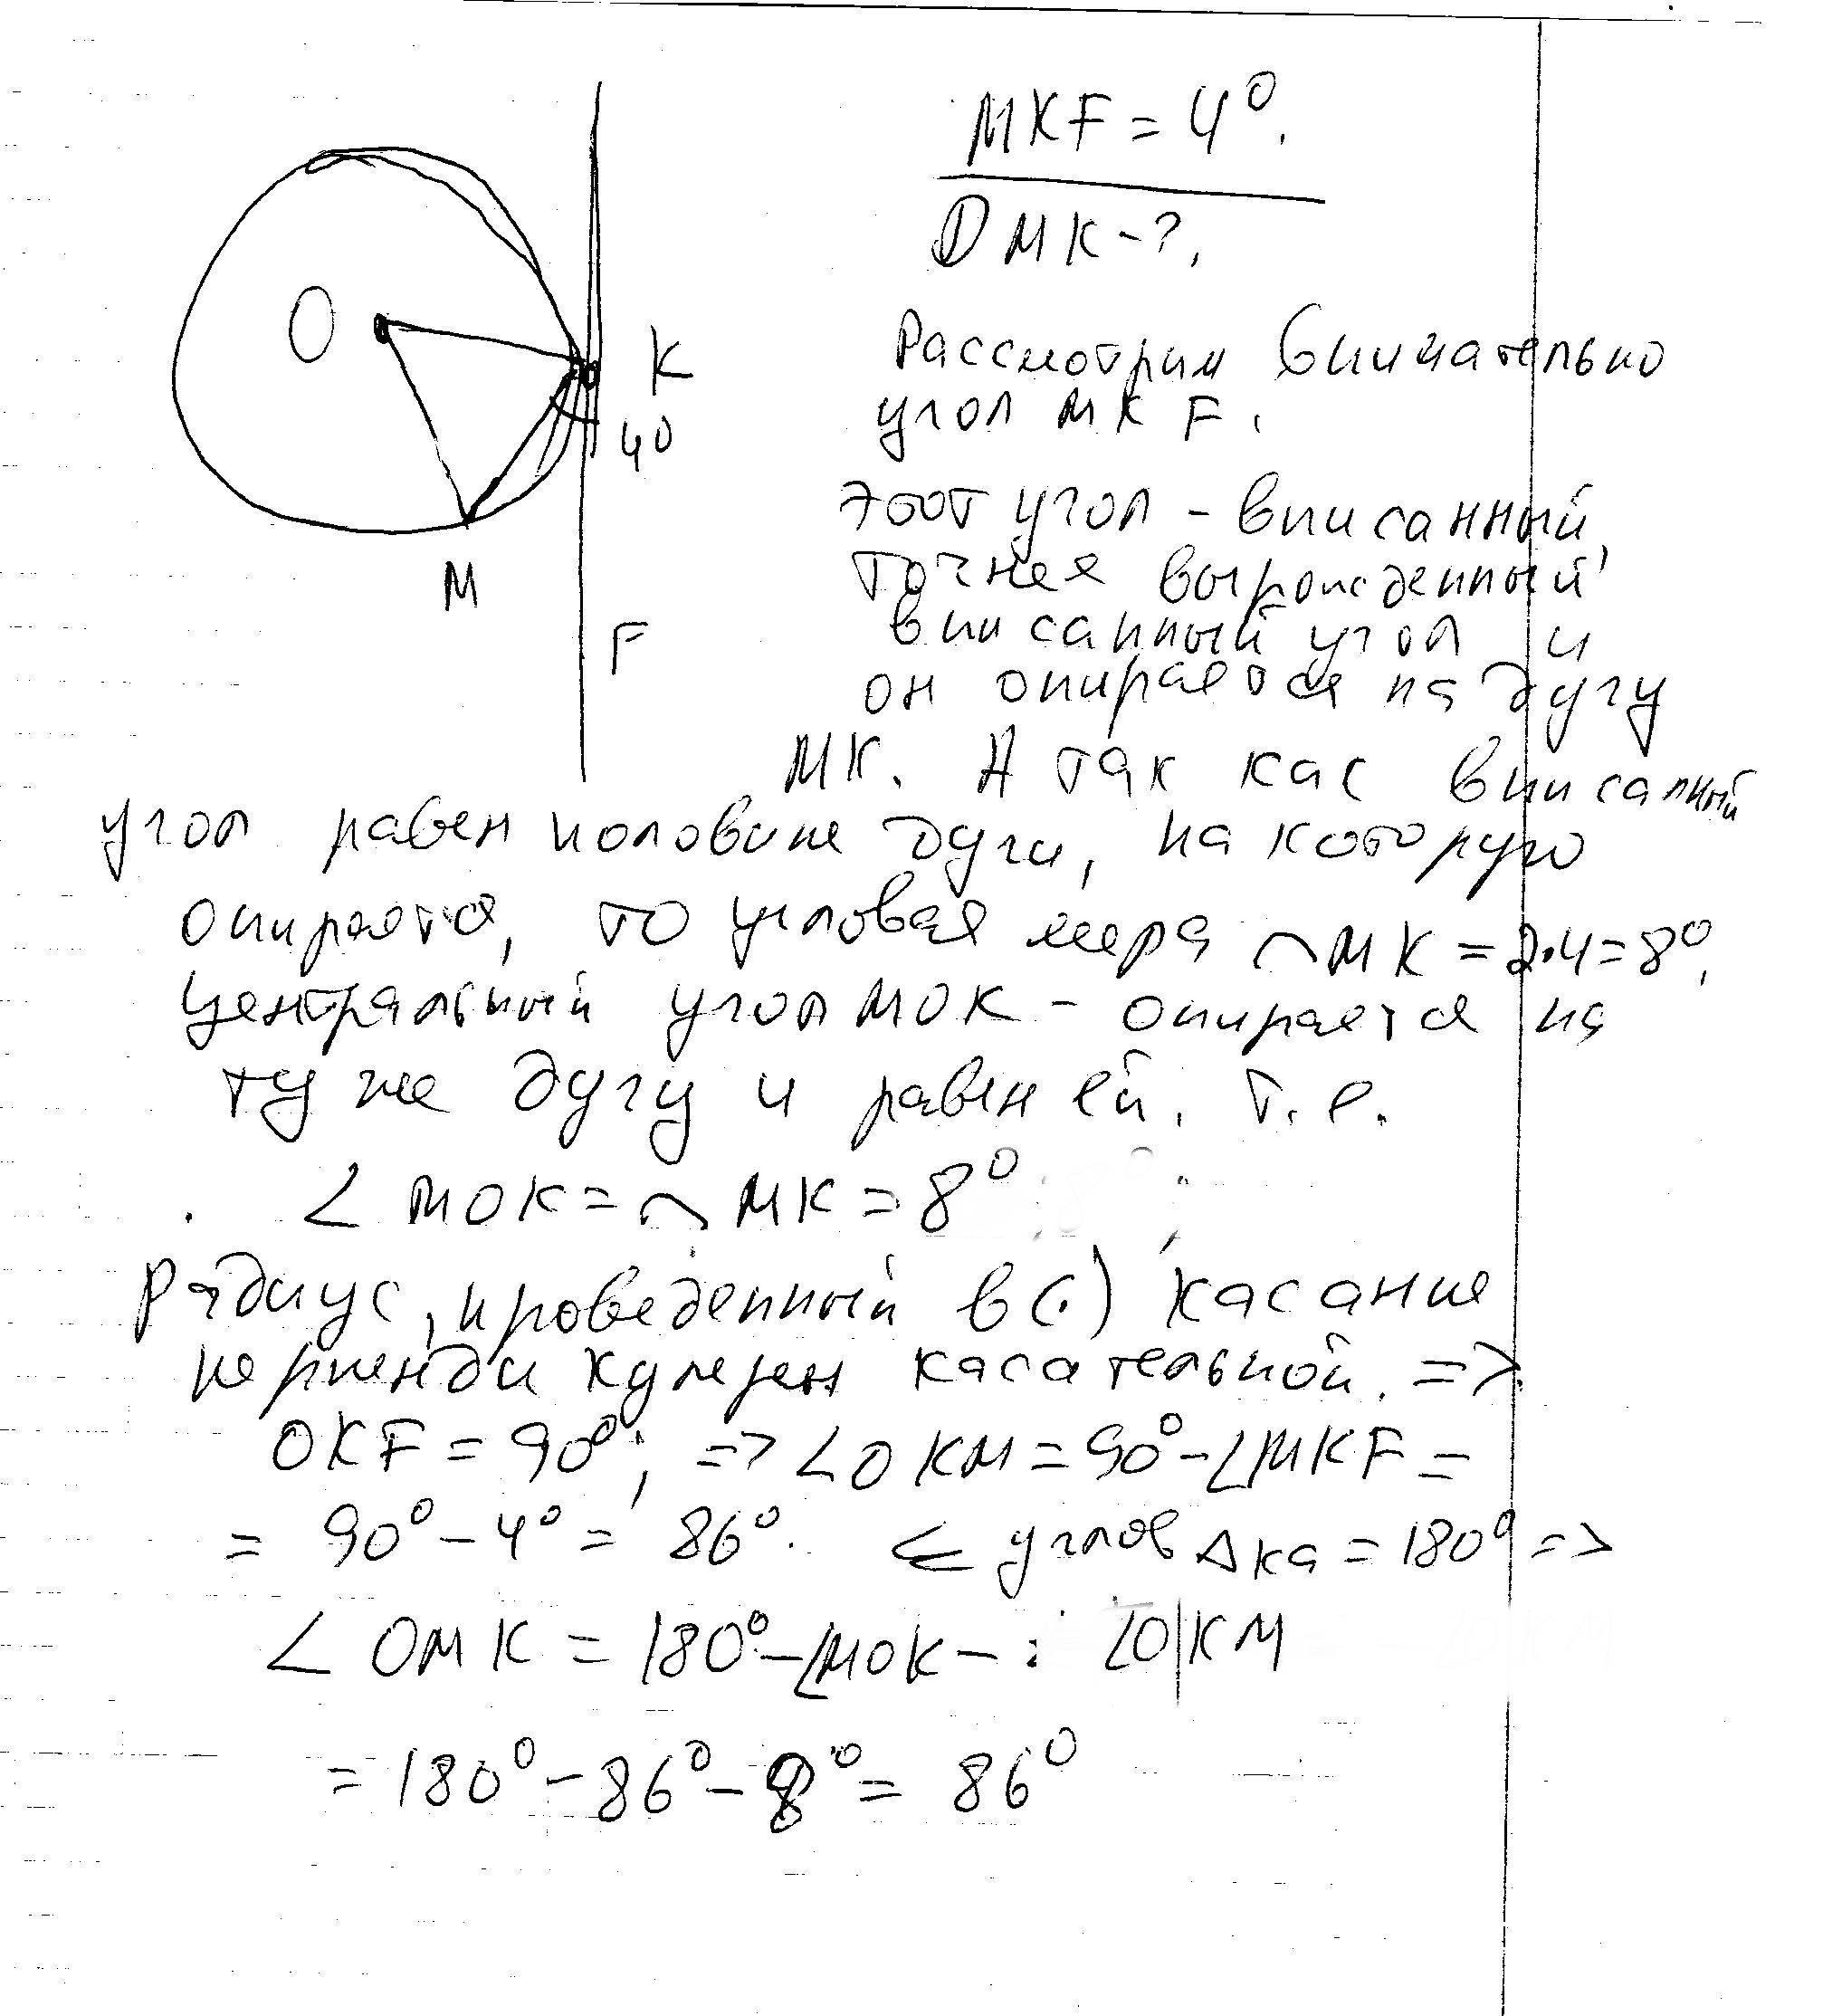 MKF = 4°.
OMK - ?.
O
K
40
M
F
Рассмотрим внимательно
угол MKF.
Этот угол - вписанный,
точнее вырожденный
вписанный угол и
он опирается на дугу
MK. А так как вписанный
угол равен половине дуги, на которую
опирается, то угловая мера ⌒MK = 2·4 = 8°.
Центральный угол MOK - опирается на
ту же дугу и равен ей. т.е.
∠ MOK = ⌒ MK = 8°
Радиус, проведенный в (·) касание
перпендикулярен касательной. =>
OKF = 90°; => ∠OKM = 90° - ∠MKF =
= 90° - 4° = 86°. углов Δка = 180° =>
∠ OMK = 180° - ∠MOK - ∠OKM
= 180° - 86° - 8° = 86°